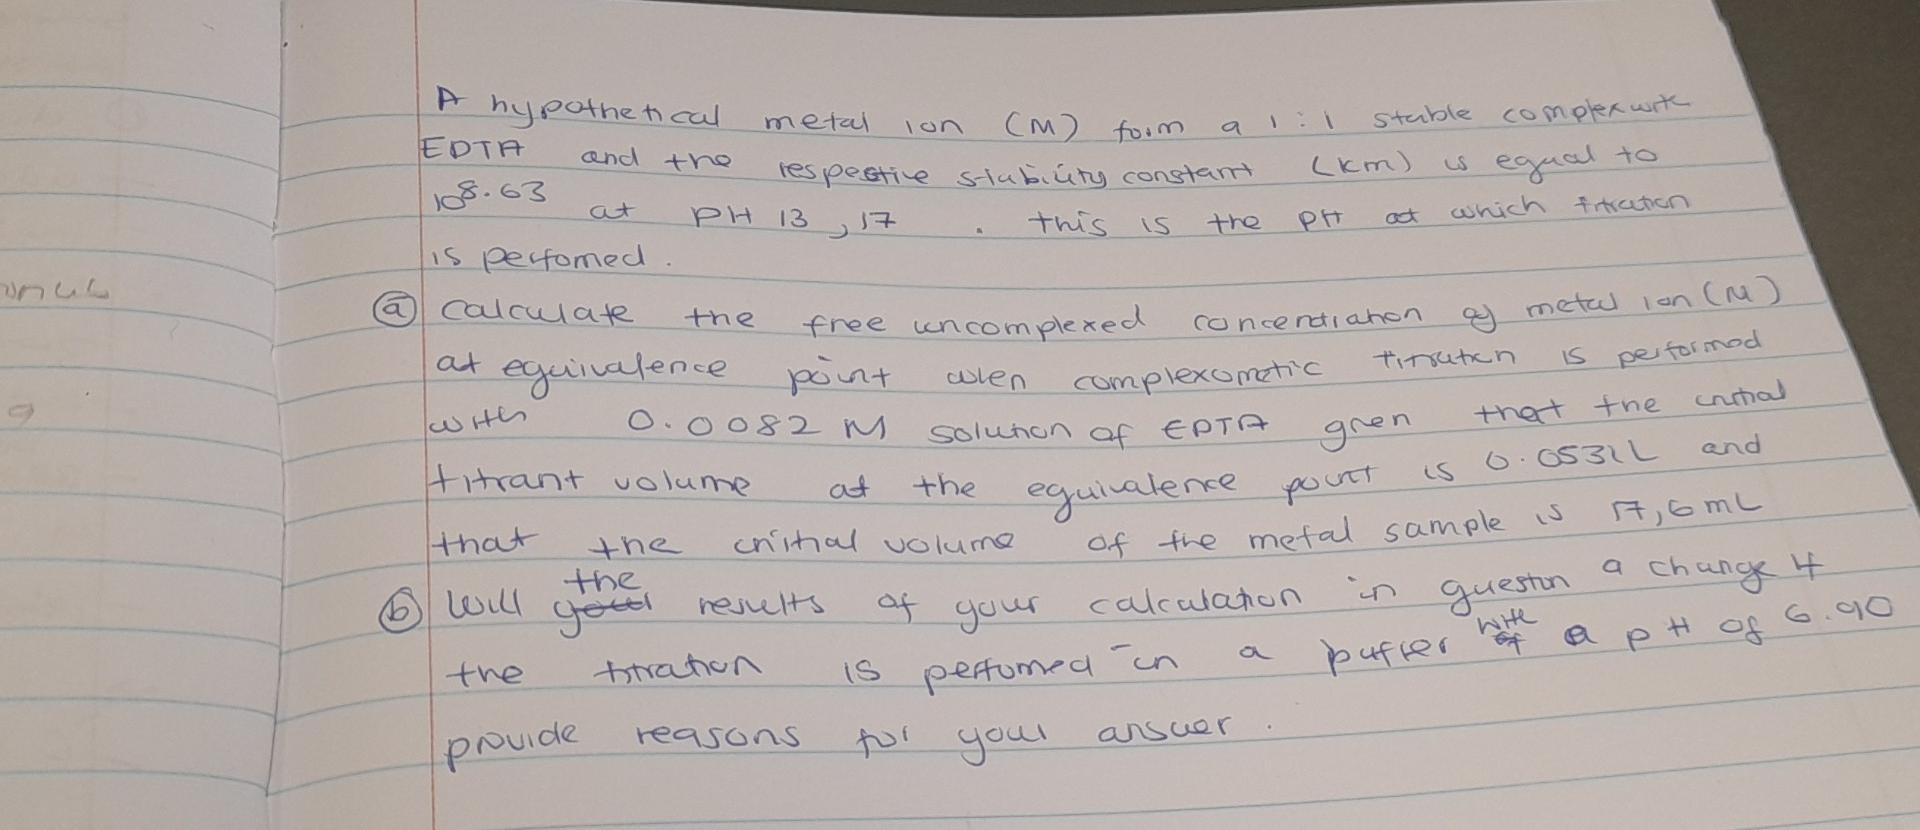 A hypothetical metal ion (M) form a 1:1 stable complex with
EDTA and the respective stability constant (Km) is equal to
10^8.63 at pH 13,17. This is the pH at which titration
is perfomed.
(a) Calculate the free uncomplexed concentration of metal ion (M)
at equivalence point when complexometric titration is performed
with 0.0082 M solution of EDTA given that the initial
titrant volume at the equivalence point is 0.0531L and
that the initial volume of the metal sample is 17,6 mL
(b) Will the results of your calculation in question a change if
the titration is perfomed in a buffer with a pH of 6.90
provide reasons for your answer.